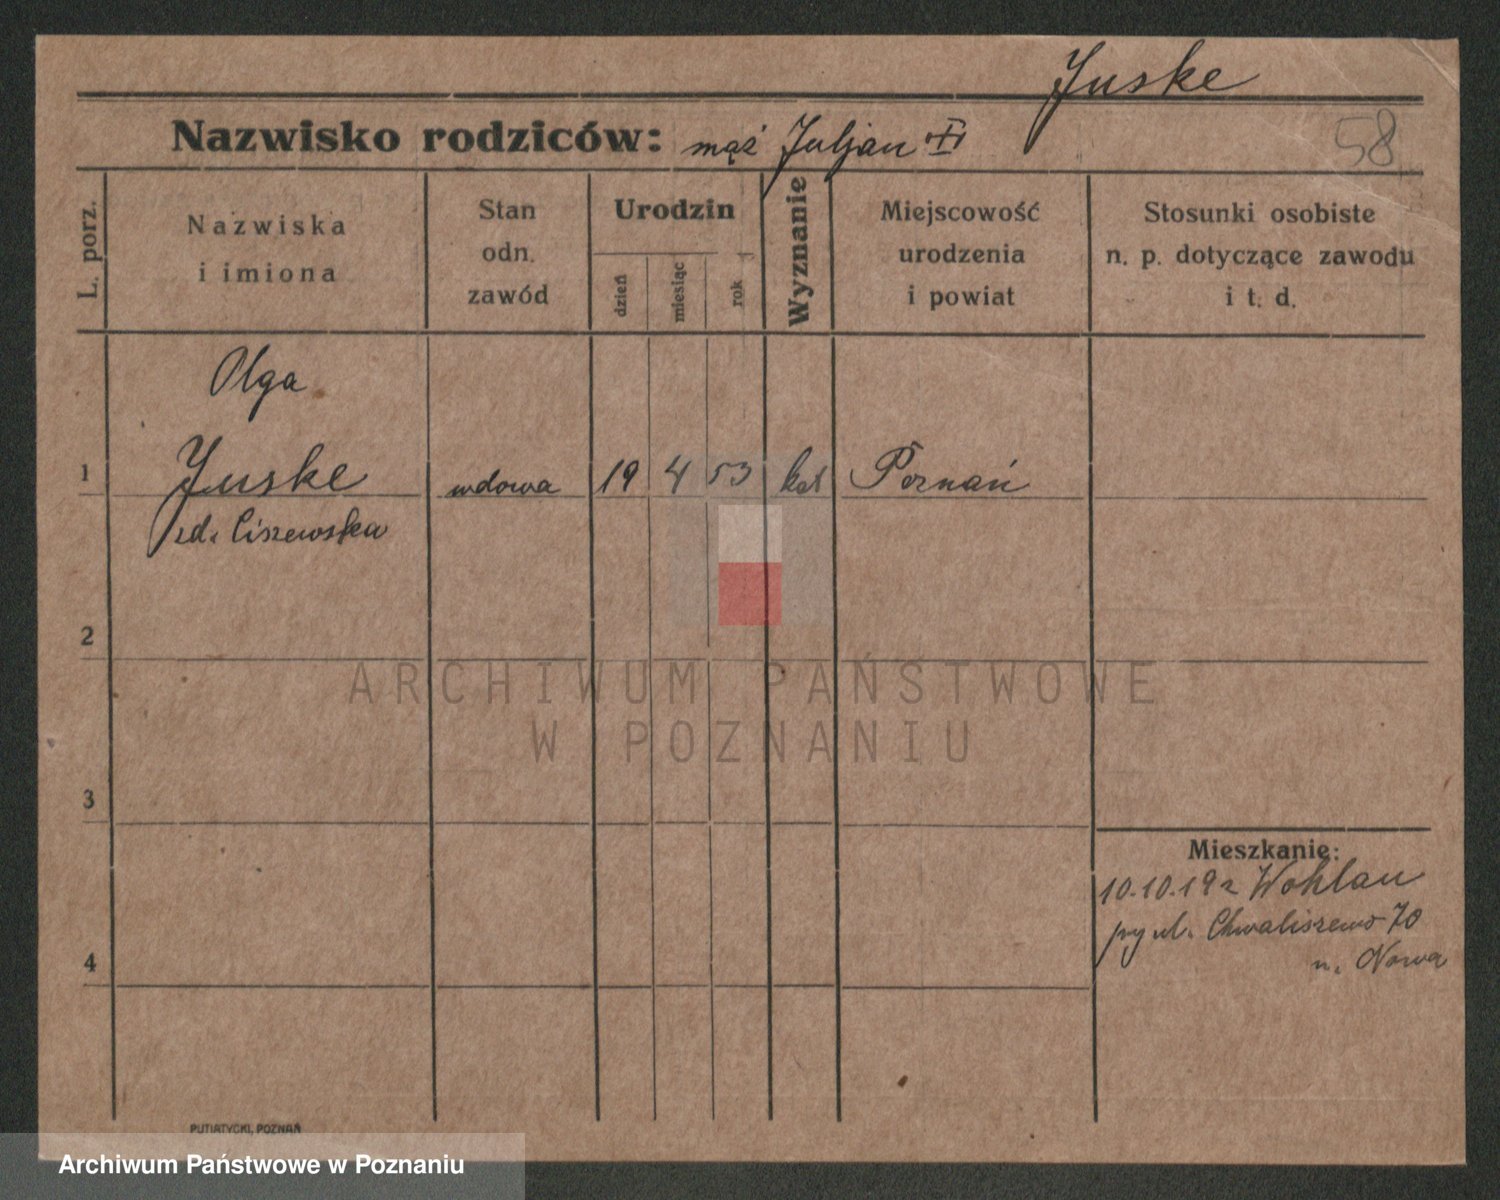 Juske
Nazwisko rodziców: mąż Juljan
58
L. porz.
Nazwiska
i imiona
Stan
odn.
zawód
Urodzin
dzień
miesiąc
rok
Wyznanie
Miejscowość
urodzenia
i powiat
Stosunki osobiste
n. p. dotyczące zawodu
i t. d.
Olga
1 Juske wdowa 19 4 53 kat Poznań
zd. Ciszewska
2
ARCHIWUM PAŃSTWOWE
W POZNANIU
3
Mieszkanie:
10.10.19 z Wohlau
ul. Chwaliszewo 70
n. Nowa
4
PUTIATYCKI, POZNAŃ
Archiwum Państwowe w Poznaniu